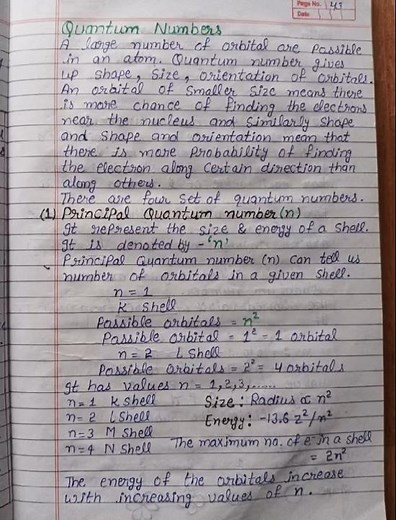 Page No. 49
Date:
Quantum Numbers
A large number of orbital are possible
in an atom. Quantum number gives
up shape, size, orientation of orbitals.
An orbital of smaller size means there
is more chance of finding the electrons
near the nucleus and similarly shape
and shape and orientation mean that
there is more probability of finding
the electron along certain direction than
along others.
There are four set of quantum numbers.
(1) Principal Quantum number (n)
It represent the size & energy of a shell.
It is denoted by - 'n'
Principal Quantum number (n) can tell us
number of orbitals in a given shell.
n = 1
K shell
Possible orbitals = n²
Possible orbital = 1² = 1 orbital
n = 2 L shell
Possible orbitals = 2² = 4 orbitals
It has values n = 1,2,3,......
n = 1 K shell Size : Radius ∝ n²
n = 2 L shell Energy : -13.6 z²/n²
n = 3 M shell The maximum no. of e⁻ in a shell
n = 4 N shell = 2n²
The energy of the orbitals increase
with increasing values of n.